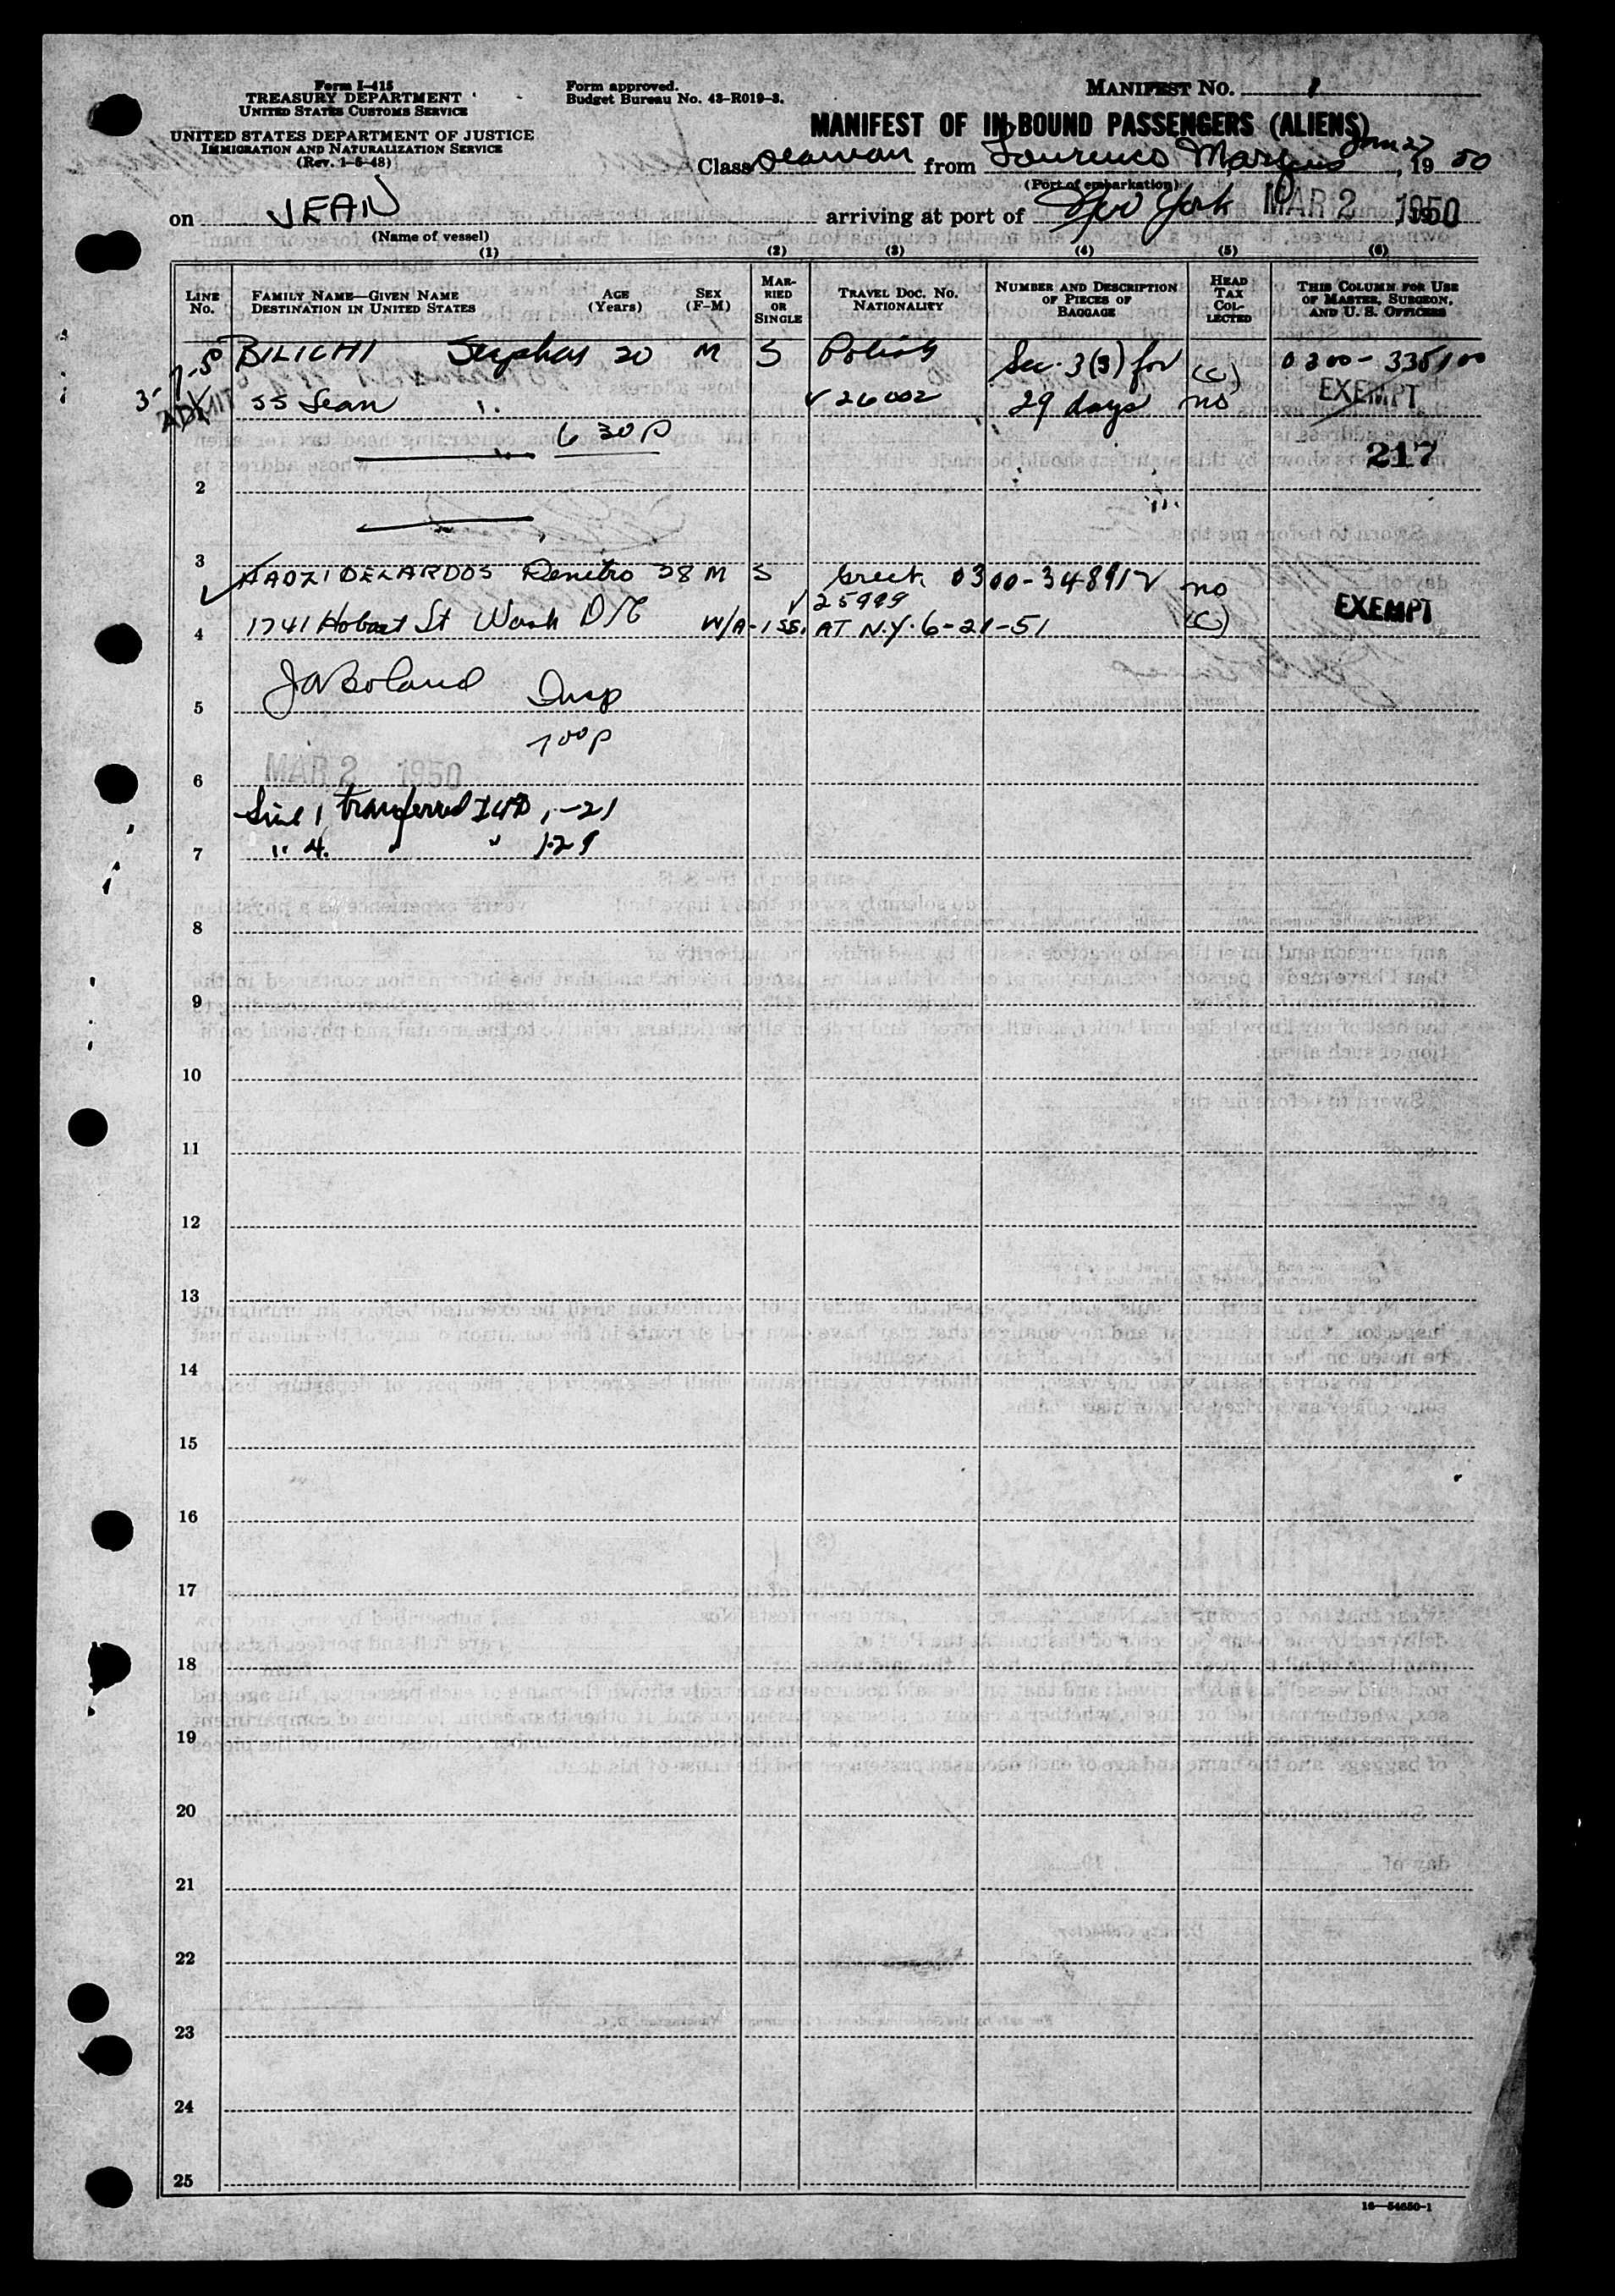 Form I-415
TREASURY DEPARTMENT
UNITED STATES CUSTOMS SERVICE
UNITED STATES DEPARTMENT OF JUSTICE
IMMIGRATION AND NATURALIZATION SERVICE
(Rev. 1-6-48)
Form approved.
Budget Bureau No. 43-R019-3.
MANIFEST NO. 1
MANIFEST OF IN-BOUND PASSENGERS (ALIENS)
Class Seaman from Lourenco Marques Jan 27, 19 50
(Port of embarkation)
on JEAN arriving at port of New York MAR 2 1950
(Name of vessel)
(1) (2) (3) (4) (5) (6)
LINE No. FAMILY NAME—GIVEN NAME DESTINATION IN UNITED STATES AGE (Years) SEX (F-M) MARRIED OR SINGLE TRAVEL DOC. NO. NATIONALITY NUMBER AND DESCRIPTION OF PIECES OF BAGGAGE HEAD TAX COLLECTED THIS COLUMN FOR USE OF MASTER, SURGEON, AND U. S. OFFICERS
BILICHI Stephen 20 M S Polish Sec. 3(5) for (C) 0300-335100
ADMIT SS Jean V 26002 29 days no EXEMPT
6 30 P
217
2
3
HADZIDELARDOS 28 M S Greek 0300-348912 no
V 25999
4 1741 Hobart St Wash D/C W/A-1 SS. AT N.Y. 6-21-51 (C) EXEMPT
JA Boland Insp
5
7 00 P
6 MAR 2 1950
Line 1 transferred I4D, -21
7 " 4. " " 1-29
8
9
10
11
12
13
14
15
16
17
18
19
20
21
22
23
24
25
16—54650-1